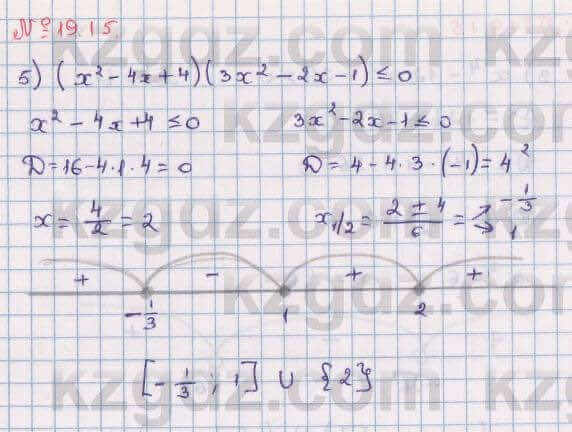 №19.15.
5) (x² - 4x + 4)(3x² - 2x - 1) ≤ 0
x² - 4x + 4 ≤ 0   3x² - 2x - 1 ≤ 0
D = 16 - 4·1·4 = 0   D = 4 - 4·3·(-1) = 4²
x = 4/2 = 2   x₁/₂ = (2 ± 4)/6 = -1/3 1
+ - + +
-1/3 1 2
[-1/3 ; 1] ∪ {2}
kzgdz.com